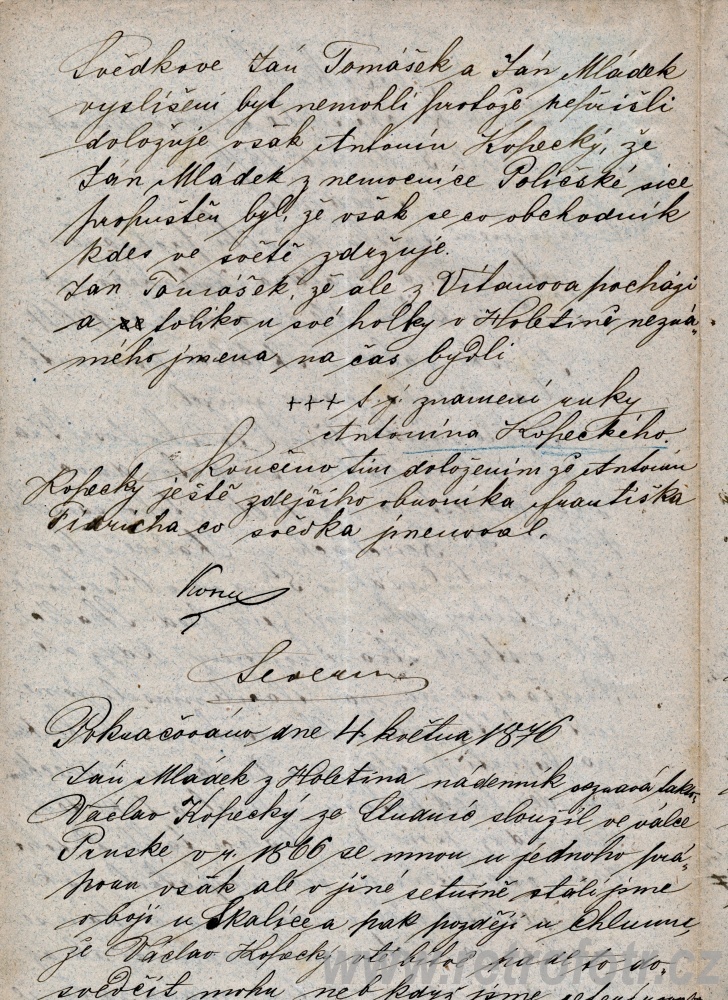 Svědkove Jan Tomášek a Ján Mládek
vyslišeni byt nemohli protože nepřišli
doložuje však Antonín Kopecký, že
Ján Mládek z nemocnice Poličské sice
propuštěn byl, že však se co obchodník
kdes ve světě zdržuje.
Jan Tomášek, že ale z Vítanova pochází
a toliko u své holky v Holetíně nezná-
mého jmena na čas bydlí
+++ t. j. znamení ruky
Antonína Kopeckého.
Končeno tím doložením že Antonín
Kopecky ještě zdejšího obunika Františka
Fidricha co svědka jmenoval.
Severin
Pokračováno dne 4 května 1876
Ján Mládek z Holetína nádenník seznává takto:
Václav Kopecký ze Studnic sloužil ve válce
Pruské v r. 1866 se mnou u jednoho prá-
poru však ale v jiné setnině stáli jsme
v boji u Skalice a pak později u Chlumu
že Václav Kopecky
svědčit mohu neb když jsme
www.retrofotr.cz